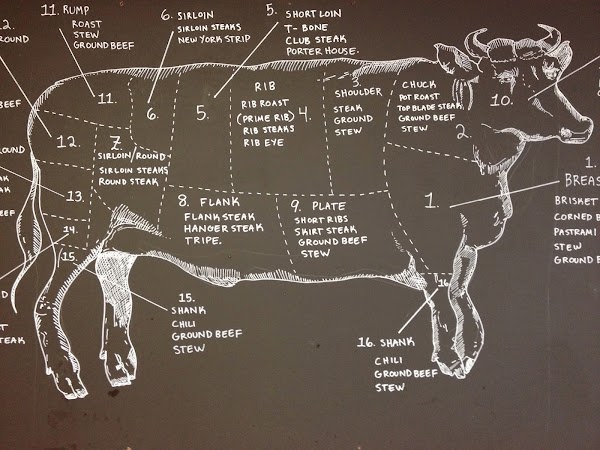 11. RUMP
ROAST
STEW
GROUND BEEF
6. SIRLOIN
SIRLOIN STEAKS
NEW YORK STRIP
5. SHORT LOIN
T-BONE
CLUB STEAK
PORTER HOUSE.
2.
ROUND
BEEF
11.
6.
5.
RIB
RIB ROAST
(PRIME RIB)
RIB STEAKS
RIB EYE
4.
3.
SHOULDER
STEAK
GROUND
STEW
CHUCK
POT ROAST
TOP BLADE STEAK
GROUND BEEF
STEW
2.
10.
12.
7.
SIRLOIN/ROUND
SIRLOIN STEAKS
ROUND STEAK
13.
14.
15.
8. FLANK
FLANK STEAK
HANGER STEAK
TRIPE.
9. PLATE
SHORT RIBS
SKIRT STEAK
GROUND BEEF
STEW
1.
1.
BREAS
BRISKET
CORNED B
PASTRAMI
STEW
GROUND B
15.
SHANK
CHILI
GROUND BEEF
STEW
16
16. SHANK
CHILI
GROUND BEEF
STEW
BEEF
STEAK